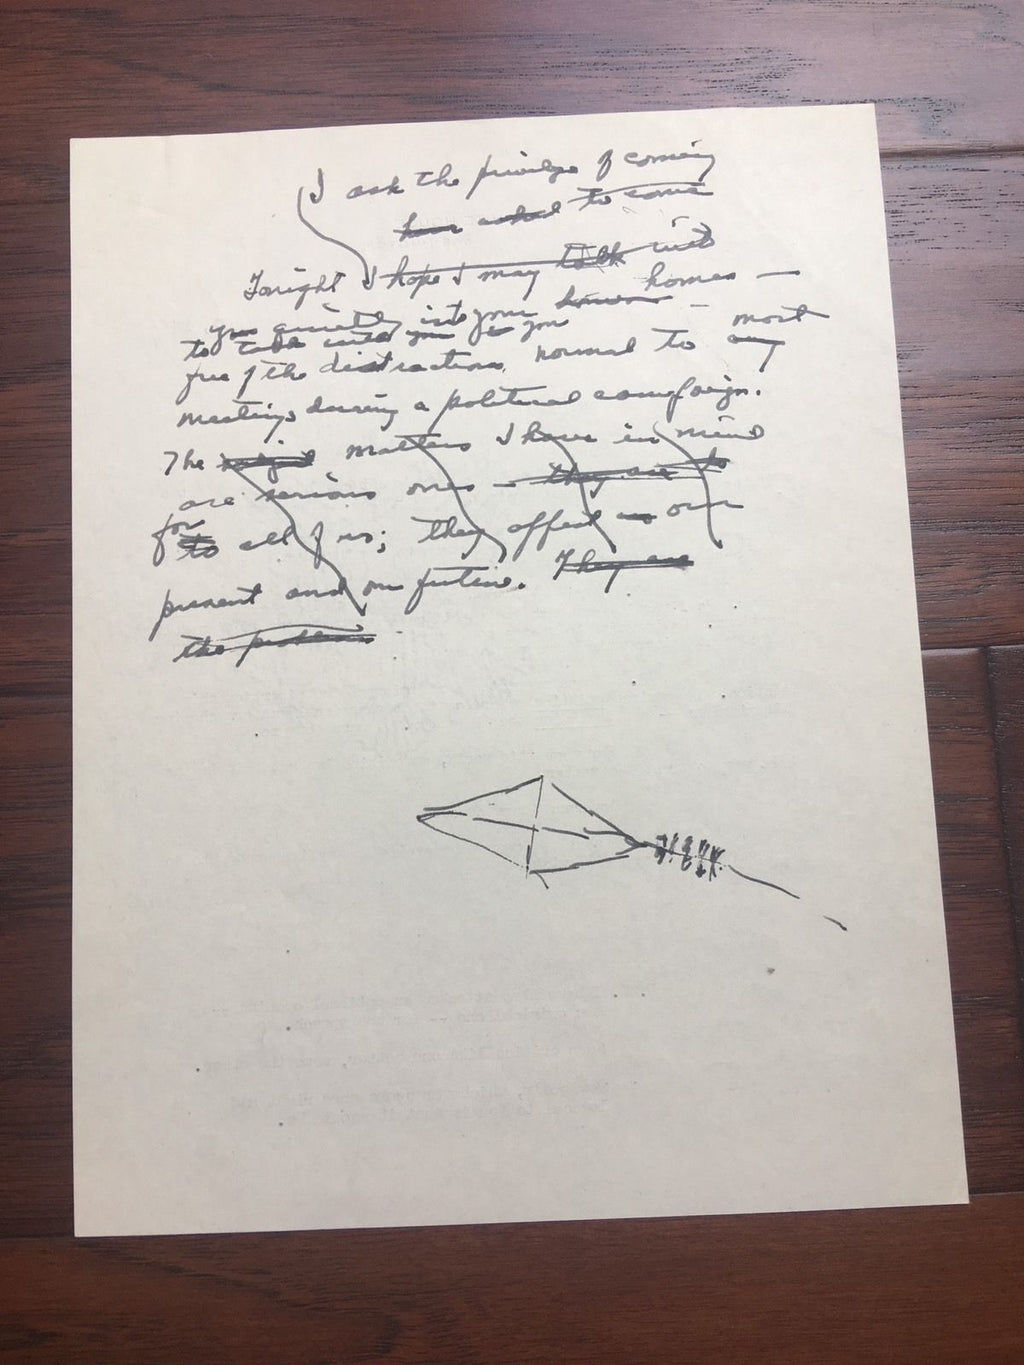 I ask the privilege of coming
have asked to come
Tonight I hope I may talk with
you quietly into your homes homes —
to talk with you for you —
free of the distractions normal to any most
meetings during a political campaign.
The matters I have in mind
are serious ones — they are to
for to all of us; they affect our
present and our future. They are
the problems